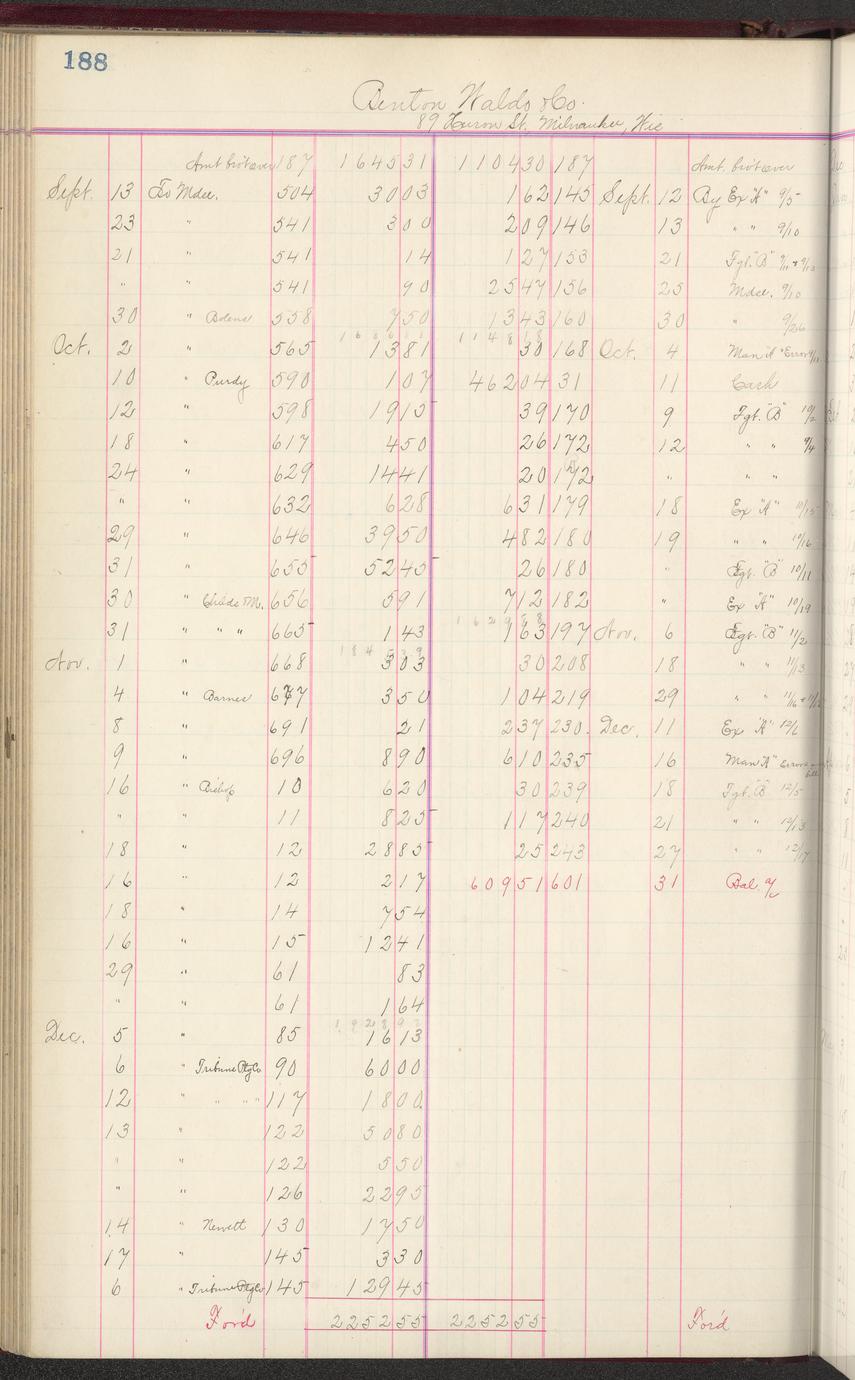 188
Benton Waldo & Co.
89 Huron St. Milwaukee, Wis
Amt brôt over 187 164531 110430 187 Amt. brôt over
Sept. 13 To Mdse. 504 3003 162 145 Sept. 12 By Ex "A" 9/5
23 " 541 300 209 146 13 " " 9/10
21 " 541 14 127 153 21 Fgt. "B"
" " 541 90 2547 156 25 Mdse. 9/10
30 " Bolens 558 750 1343 160 30 " 9/26
Oct. 2 " 565 1381 30 168 Oct. 4 Man "A" Error
10 " Purdy 590 107 46204 31 11 Cash
12 " 598 1915 39 170 9 Fgt. "B" 10/2
18 " 617 450 26 172 12 " " 9/4
24 " 629 1441 20 172 " " "
" " 632 628 631 179 18 Ex "A" 10/15
29 " 646 3950 482 180 19 " " 10/16
31 " 655 5245 26 180 " Fgt. "B" 10/11
30 " Childs M. 656 591 712 182 " Ex "A" 10/19
31 " " " 665 143 163 197 Nov. 6 Fgt. "B" 11/2
Nov. 1 " 668 303 30 208 18 " " 11/13
4 " Barnes 677 350 104 219 29 " "
8 " 691 21 237 230. Dec. 11 Ex "A" 12/6
9 " 696 890 610 235 16 Man "A" Error
16 " Bishop 10 620 30 239 18 Fgt. "B" 12/5
" " 11 825 117 240 21 " " 12/13
18 " 12 2885 25 243 27 " " 12/17
16 " 12 217 60951 601 31 Bal. a/c
18 " 14 754
16 " 15 1241
29 " 61 83
" " 61 164
Dec. 5 " 85 1613
6 " Tribune Ptg Co 90 6000
12 " " " " 117 1800
13 " 122 5080
" " 122 550
" " 126 2295
14 " Newett 130 1750
17 " 145 330
6 " Tribune Ptg Co 145 12945
For'd 225255 225255 For'd